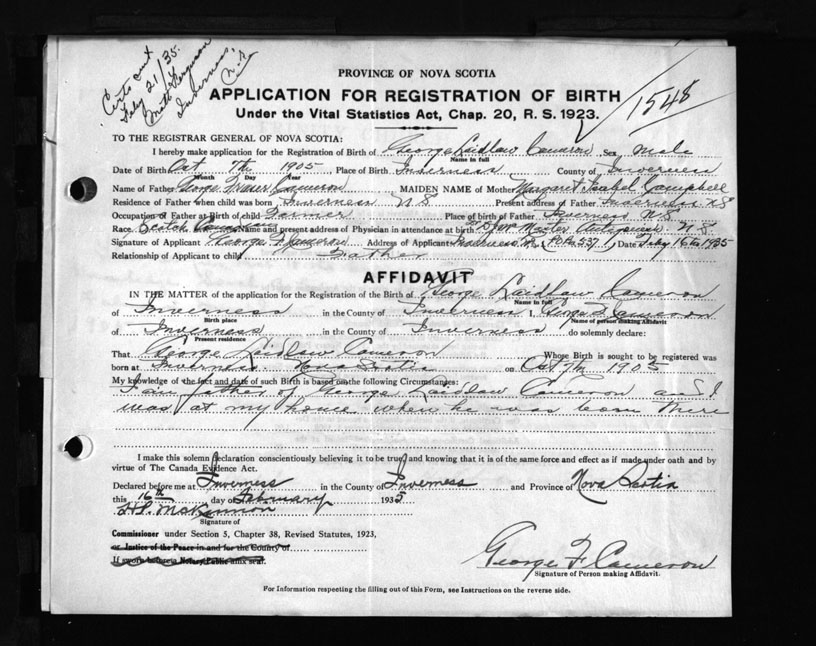 Certs out
Feby 21/35.
Inverness,
N.S.
1548
PROVINCE OF NOVA SCOTIA
APPLICATION FOR REGISTRATION OF BIRTH
Under the Vital Statistics Act, Chap. 20, R. S. 1923.
TO THE REGISTRAR GENERAL OF NOVA SCOTIA:
I hereby make application for the Registration of Birth of George Laidlaw Cameron Sex Male
Name in full
Date of Birth Oct 7th 1905, Place of Birth Inverness County of Inverness
Month Day Year
Name of Father George Fraser Cameron MAIDEN NAME of Mother Margaret Isabel Campbell
Residence of Father when child was born Inverness N S Present address of Father Inverness NS
Occupation of Father at Birth of child Farmer Place of birth of Father Inverness N.S.
Race, Scotch Name and present address of Physician in attendance at birth N.S.
Signature of Applicant George F Cameron Address of Applicant Inverness (Po Bx 537) Date Feby 16th 1935
Relationship of Applicant to child Father
AFFIDAVIT
IN THE MATTER of the application for the Registration of the Birth of George Laidlaw Cameron
Name in full
of Inverness in the County of Inverness I, George F Cameron
Birth place Name of person making Affidavit
of Inverness in the County of Inverness do solemnly declare:
Present residence
That George Laidlaw Cameron Whose Birth is sought to be registered was
born at Inverness Nova Scotia on Oct 7th 1905
My knowledge of the fact and date of such Birth is based on the following Circumstances:
I am father of George Laidlaw Cameron and I
was at my house when he was born there
I make this solemn declaration conscientiously believing it to be true, and knowing that it is of the same force and effect as if made under oath and by
virtue of The Canada Evidence Act.
Declared before me at Inverness in the County of Inverness and Province of Nova Scotia
this 16th day of February 1935
McKinnon
Signature of
Commissioner under Section 5, Chapter 38, Revised Statutes, 1923,
or Justice of the Peace in and for the County of
If sworn before a Notary Public affix seal.
George F Cameron
Signature of Person making Affidavit.
For Information respecting the filling out of this Form, see Instructions on the reverse side.